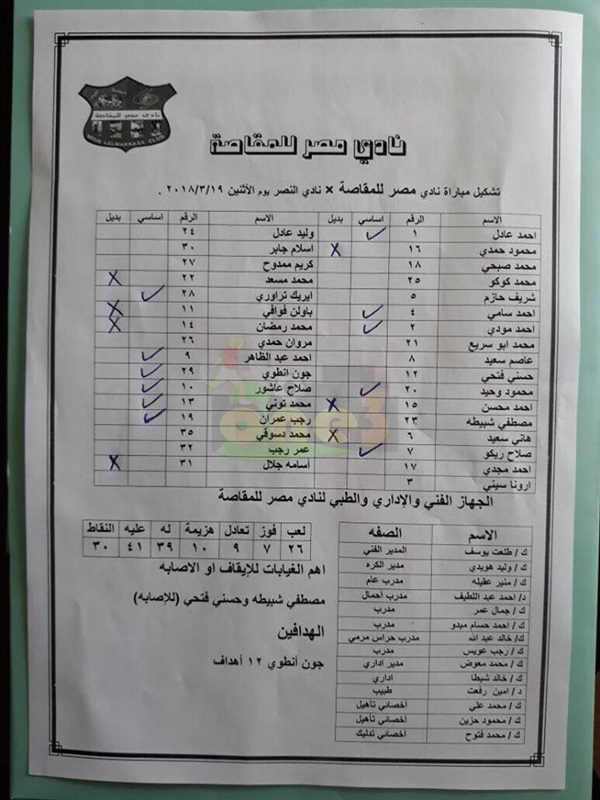 نادي مصر للمقاصة
MISR LELMAKKASA CLUB
نادي مصر للمقاصة
تشكيل مباراة نادي مصر للمقاصة × نادي النصر يوم الأثنين ٢٠١٨/٣/١٩ .
الاسم الرقم اساسي بديل الاسم الرقم اساسي بديل
احمد عادل ١ ✓ وليد عادل ٢٤
محمود حمدي ١٦ X اسلام جابر ٣٠
محمد صبحي ١٨ كريم ممدوح ٢٧
محمد كوكو ٢٥ محمد مسعد ٢٢ X
شريف حازم ٥ ايريك تراوري ٢٨ ✓
احمد سامي ٤ ✓ باولن فوافي ١١ X
احمد مودي ٢ ✓ محمد رمضان ١٤ X
محمد ابو سريع ٢١ مروان حمدي ٢٦
عاصم سعيد ٨ احمد عبد الظاهر ٩ ✓
حسني فتحي ١٢ جون انطوي ٢٩ ✓
محمود وحيد ٢٠ ✓ صلاح عاشور ١٠ ✓
احمد محسن ١٥ X محمد توني ١٣ ✓
مصطفي شبيطه ٢٣ رجب عمران ١٩ ✓
هاني سعيد ٦ X محمد دسوقي ٣٥
صلاح ريكو ٧ ✓ عمر رجب ٣٢
احمد مجدي ١٧ أسامه جلال ٣١ X
ارونا سيني ٣
الجهاز الفني والإداري والطبي لنادي مصر للمقاصة
الاسم الصفه
ك / طلعت يوسف المدير الفني
ك / وليد هويدي مدير الكره
ك / منير عقيله مدرب عام
د/ احمد عبد اللطيف مدرب احمال
ك / جمال عمر مدرب
ك / احمد حسام ميدو مدرب
ك/ خالد عبد الله مدرب حراس مرمي
ك / رجب عويس مدرب
ك / محمد معوض مدير اداري
ك / خالد شيطا اداري
د / امين رفعت طبيب
ك / محمد علي أخصائي تأهيل
ك / محمود حزين أخصائي تأهيل
ك / محمد فتوح أخصائي تدليك
لعب فوز تعادل هزيمة له عليه النقاط
٢٦ ٧ ٩ ١٠ ٣٩ ٤١ ٣٠
اهم الغيابات للإيقاف او الاصابه
مصطفي شبيطه وحسني فتحي (للإصابه)
الهدافين
جون أنطوي ١٢ أهداف